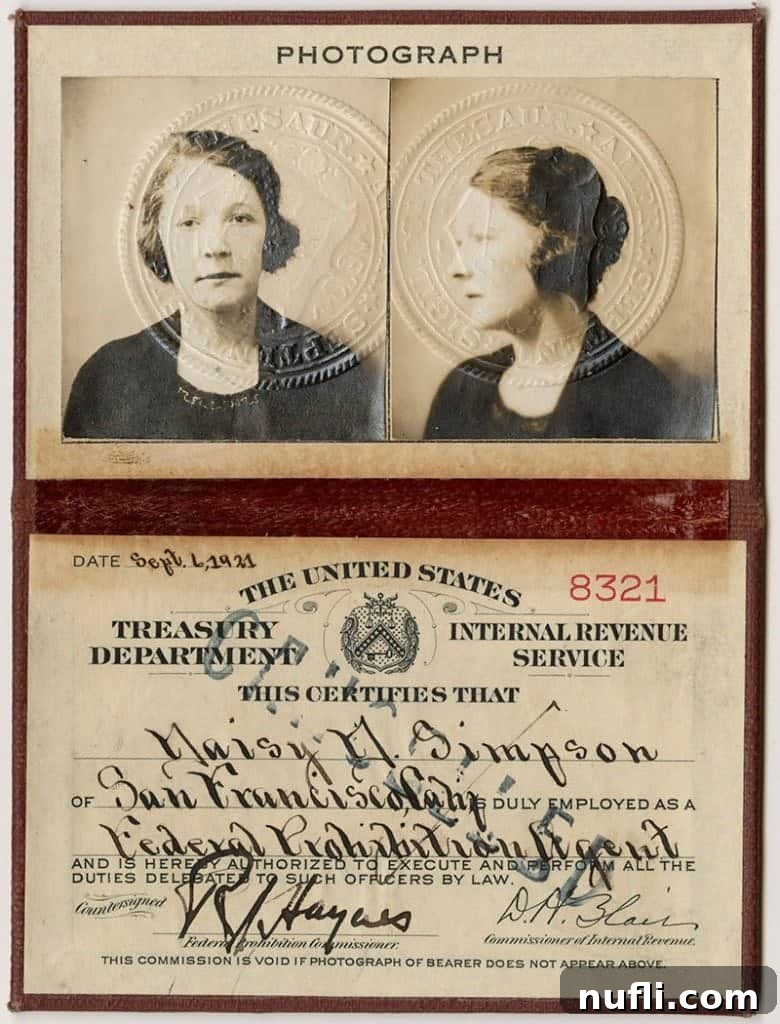 PHOTOGRAPH
DATE Sept. 6, 1921
8321
THE UNITED STATES
TREASURY DEPARTMENT
INTERNAL REVENUE SERVICE
THIS CERTIFIES THAT
Daisy M. Simpson
OF San Francisco, Calif IS DULY EMPLOYED AS A
Federal Prohibition Agent
AND IS HEREBY AUTHORIZED TO EXECUTE AND PERFORM ALL THE
DUTIES DELEGATED TO SUCH OFFICERS BY LAW.
Countersigned
R. Haynes
D. H. Blair
Federal Prohibition Commissioner.
Commissioner of Internal Revenue.
THIS COMMISSION IS VOID IF PHOTOGRAPH OF BEARER DOES NOT APPEAR ABOVE.
nufli.com